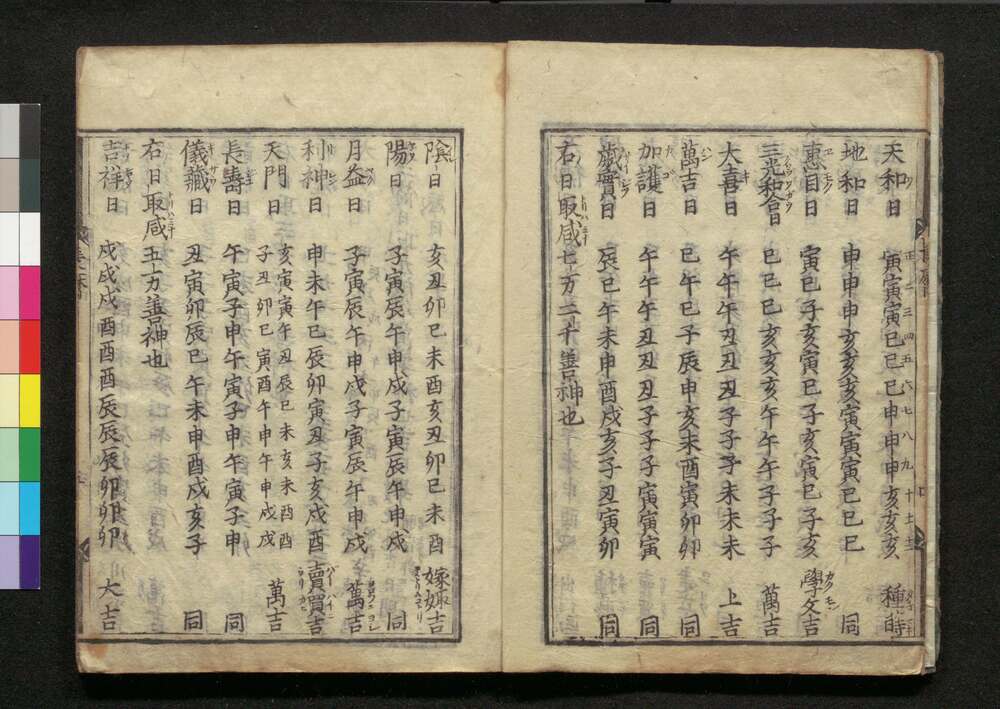 正 二 三 四 五 六 七 八 九 十 十一 十二
天和日 寅寅寅巳巳巳申申申亥亥亥 種時
地和日 申申申亥亥亥寅寅寅巳巳巳 同
恵目日 寅巳子亥寅巳子亥寅巳子亥 學文吉
三光和合日 巳巳巳亥亥亥午午午子子子 萬吉
大喜日 午午午丑丑丑子子子未未未 上吉
萬吉日 巳午巳子辰申亥未酉寅卯卯 同
加護日 午午午丑丑丑子子子寅寅寅 同
藏寳日 辰巳午未申酉戌亥子丑寅卯 同
右日取咸七万二千善神也
陰日 亥丑卯巳未酉亥丑卯巳未酉 嫁娵吉
陽日 子寅辰午申戌子寅辰午申戌 同
月益日 子寅辰午申戌子寅辰午申戌 萬吉
利神日 申未午巳辰卯寅丑子亥戌酉 賣買吉
天門日 亥寅寅午丑辰巳未亥未酉酉 萬吉
子丑卯巳寅酉午申午申戌戌
長壽日 午寅子申午寅子申午寅子申 同
儀藏日 丑寅卯辰巳午未申酉戌亥子 同
右日取咸五万善神也
吉祥日 戌戌戌酉酉酉辰辰辰卯卯卯 大吉